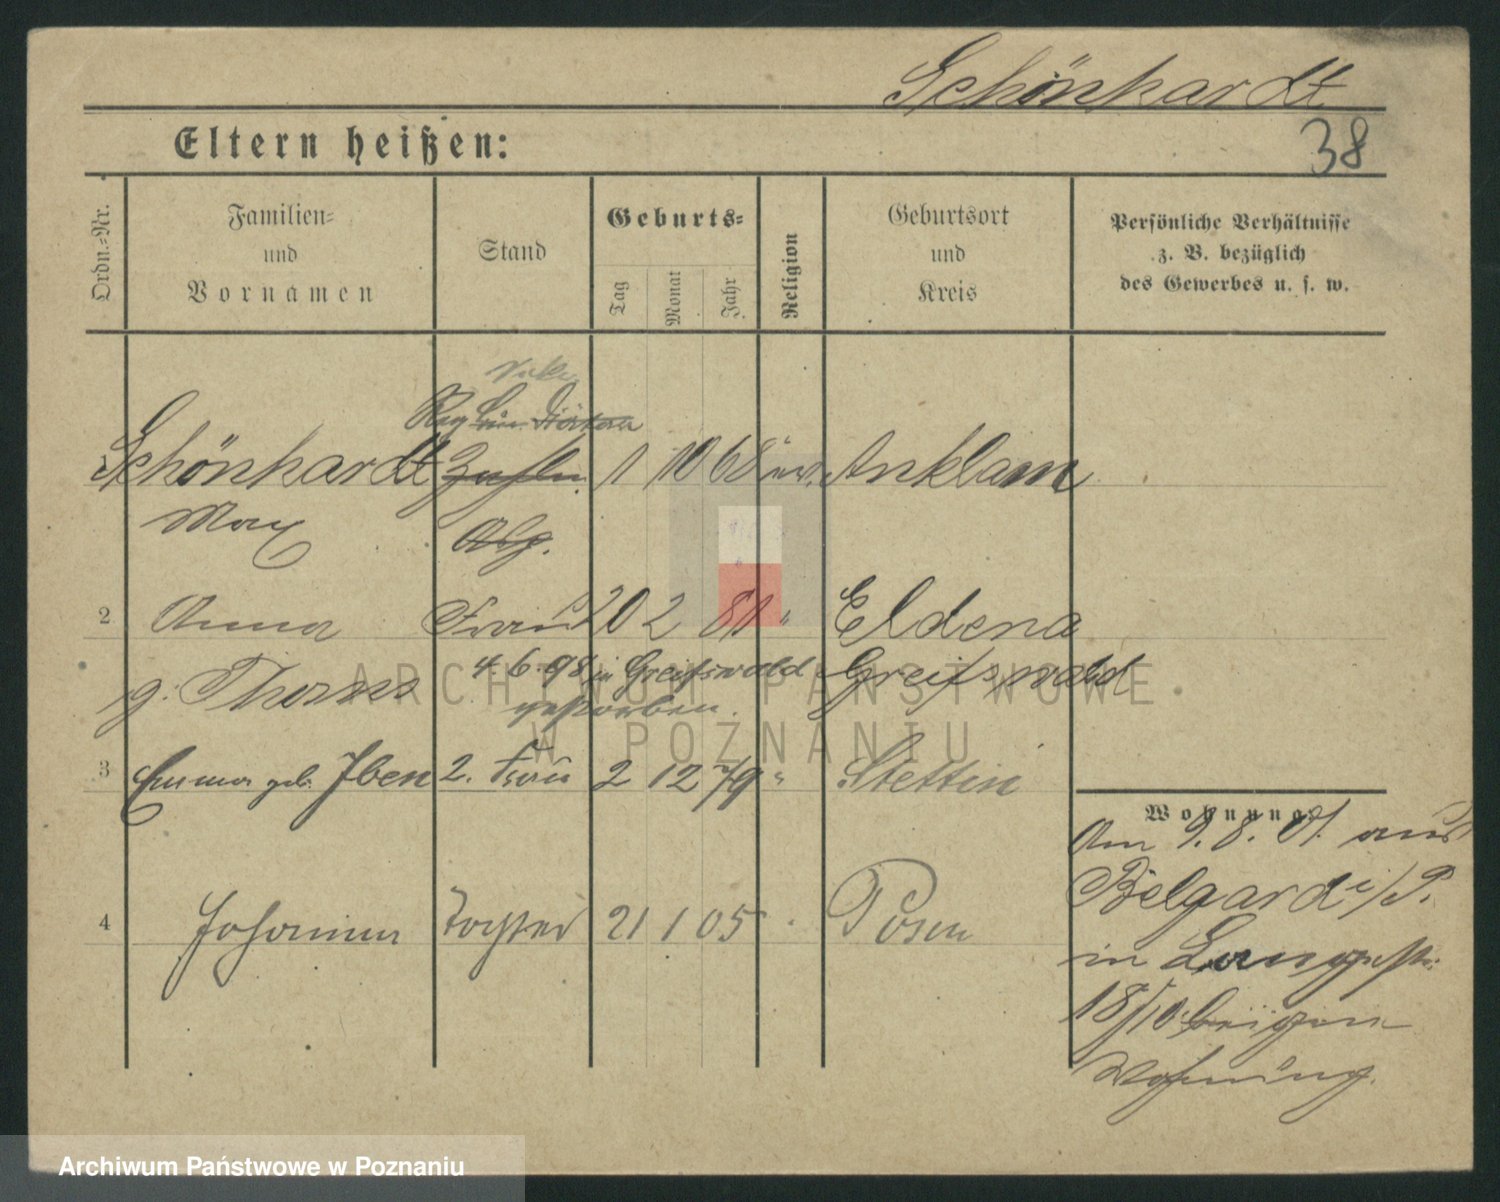 Schönhardt
38
Eltern heißen:
Ordn.-Nr.
Familien-
und
Vornamen
Stand
Geburts-
Tag
Monat
Jahr
Religion
Geburtsort
und
Kreis
Persönliche Verhältnisse
z. B. bezüglich
des Gewerbes u. s. w.
Reg
Schönhardt 1 10 68 ev. Anklam
Max
2 Anna Frau 20 2 "
Eldena
g. Thoms 4.6.98 in Greifswald Greifswald
gestorben.
3 Emma geb. Iben 2. Frau 2 12 79 " Stettin
Wohnung:
Am 9.8.01. aus
Belgard i/P.
in Langestr.
4 Johanna Tochter 21 1 05 Posen
18/10 bei
Wohnung.
ARCHIWUM PAŃSTWOWE
W POZNANIU
Archiwum Państwowe w Poznaniu